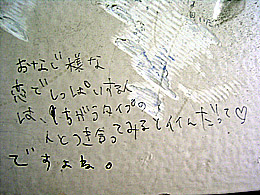 おなじ様な
恋でしっぱいする人
は、ちがうタイプの
人とつき合ってみるとイイんだって♡
ですよね。